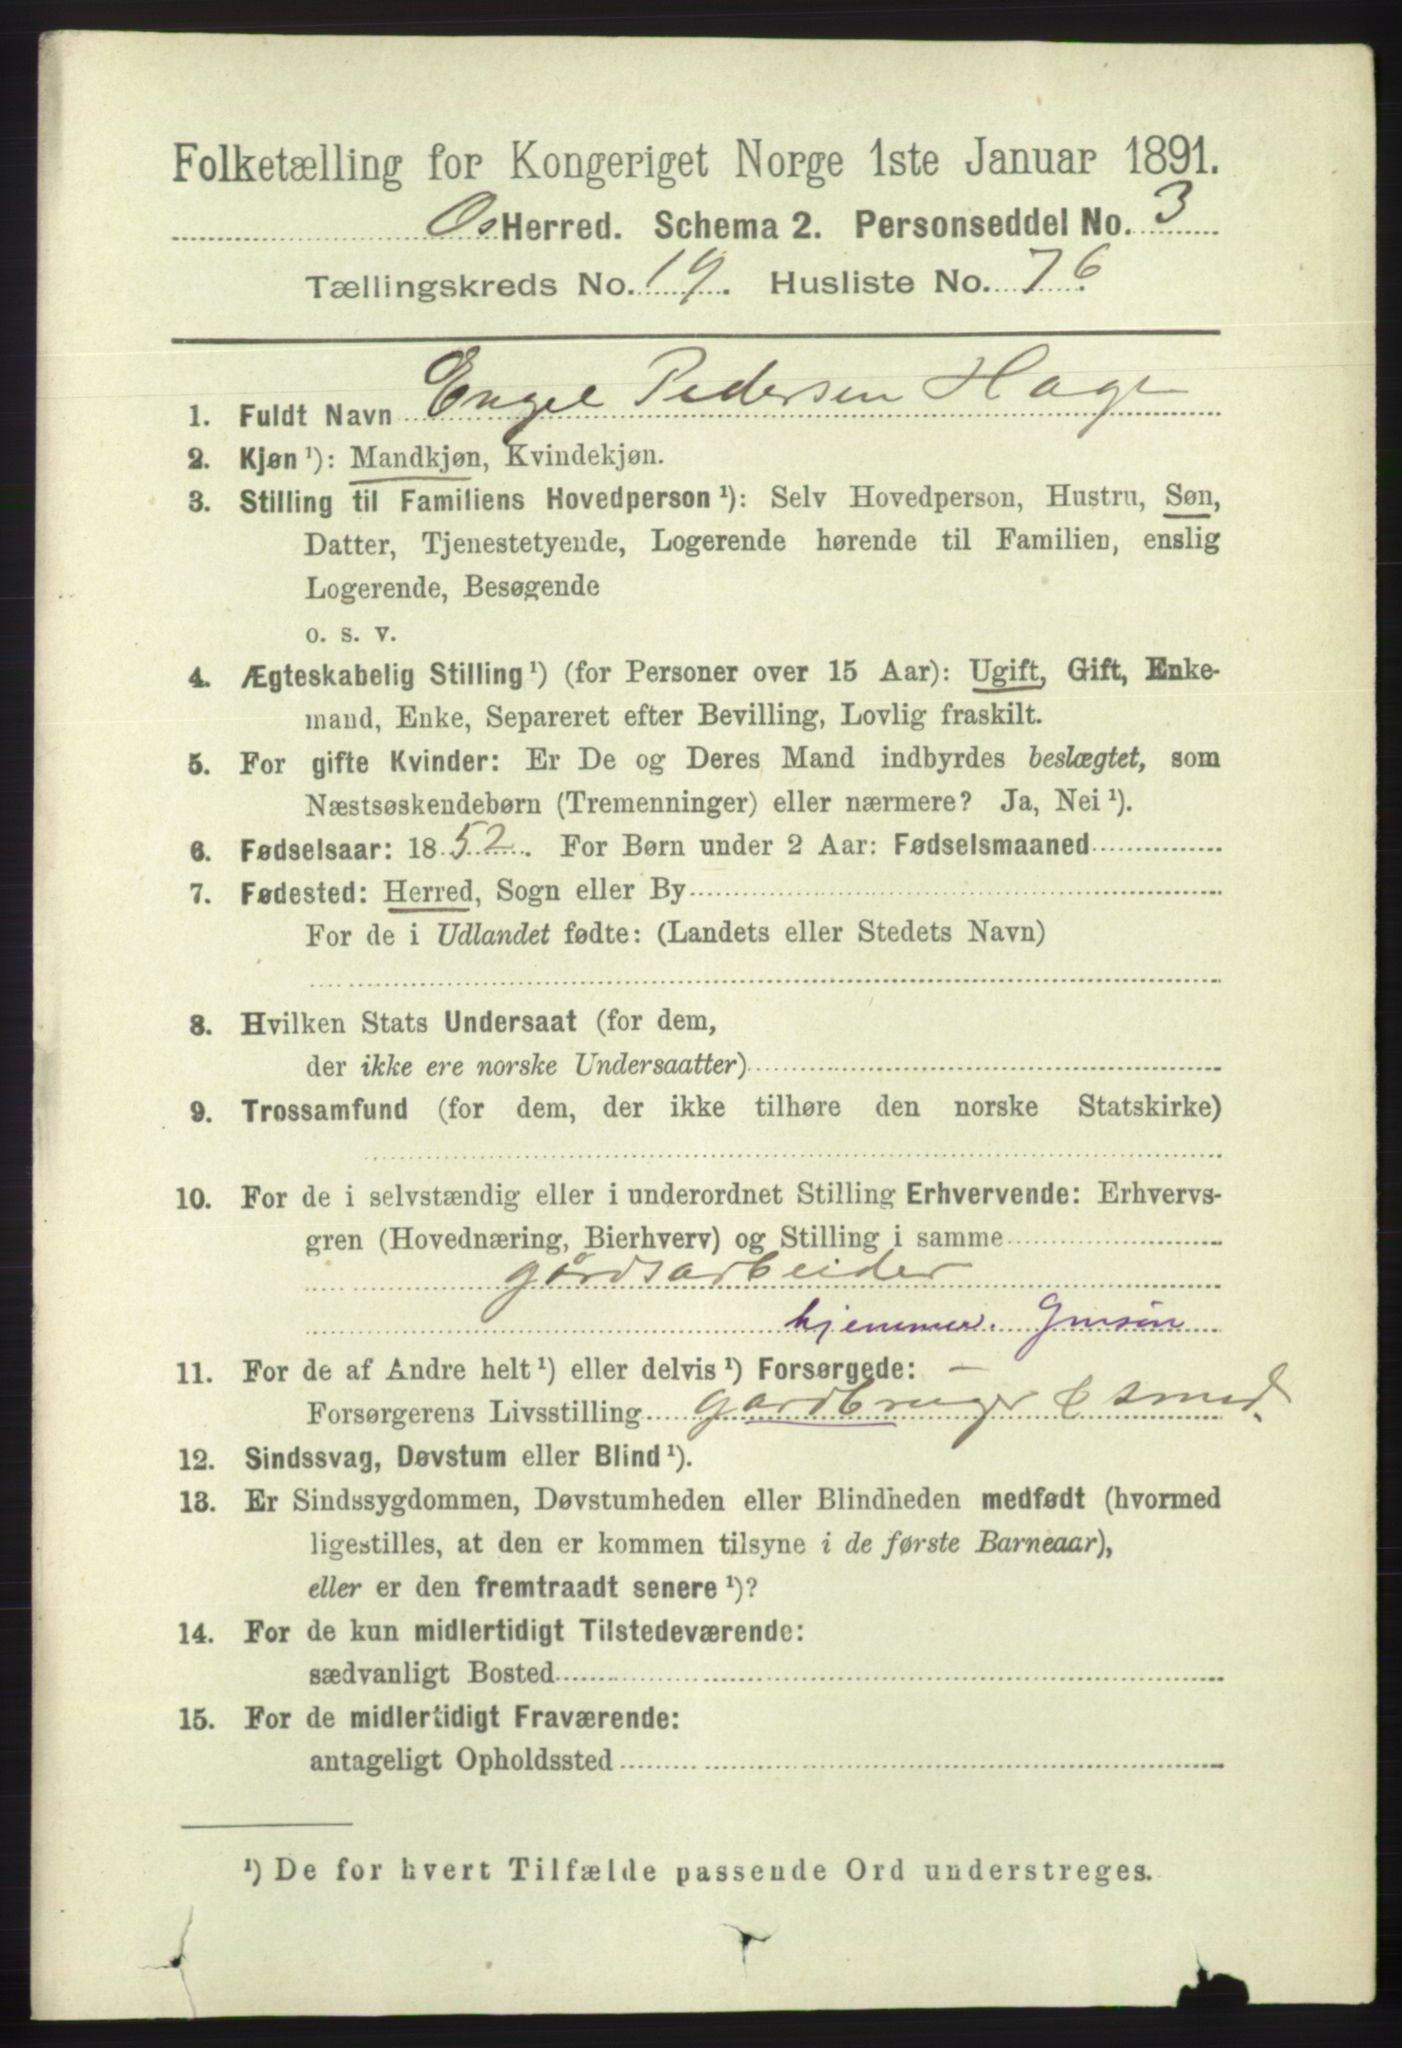 Folketælling for Kongeriget Norge 1ste Januar 1891.
Os Herred. Schema 2. Personseddel No. 3
Tællingskreds No. 19. Husliste No. 76
1. Fuldt Navn Engel Pedersen Hage
2. Kjøn¹): Mandkjøn, Kvindekjøn.
3. Stilling til Familiens Hovedperson¹): Selv Hovedperson, Hustru, Søn,
Datter, Tjenestetyende, Logerende hørende til Familien, enslig
Logerende, Besøgende
o. s. v.
4. Ægteskabelig Stilling¹) (for Personer over 15 Aar): Ugift, Gift, Enke-
mand, Enke, Separeret efter Bevilling, Lovlig fraskilt.
5. For gifte Kvinder: Er De og Deres Mand indbyrdes beslægtet, som
Næstsøskendebørn (Tremenninger) eller nærmere? Ja, Nei¹).
6. Fødselsaar: 1852. For Børn under 2 Aar: Fødselsmaaned
7. Fødested: Herred, Sogn eller By
For de i Udlandet fødte: (Landets eller Stedets Navn)
8. Hvilken Stats Undersaat (for dem,
der ikke ere norske Undersaatter)
9. Trossamfund (for dem, der ikke tilhøre den norske Statskirke)
10. For de i selvstændig eller i underordnet Stilling Erhvervende: Erhvervs-
gren (Hovednæring, Bierhverv) og Stilling i samme
gårdsarbeider
hjemmev. Gmsøn
11. For de af Andre helt¹) eller delvis¹) Forsørgede: –
Forsørgerens Livsstilling gardbruger & smed.
12. Sindssvag, Døvstum eller Blind¹).
13. Er Sindssygdommen, Døvstumheden eller Blindheden medfødt (hvormed
ligestilles, at den er kommen tilsyne i de første Barneaar),
eller er den fremtraadt senere¹)?
14. For de kun midlertidigt Tilstedeværende:
sædvanligt Bosted
15. For de midlertidigt Fraværende:
antageligt Opholdssted
¹) De for hvert Tilfælde passende Ord understreges.